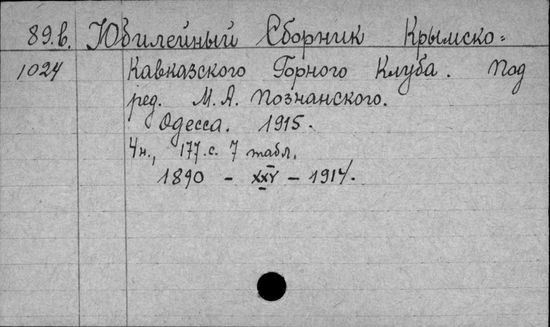 89.в. Юбилейный Сборник Крымско=
1024 Кавказского Горного Клуба. Под
ред. М. А. Познанского.
Одесса. 1915.
4н., 177 с. 7 табл.
1890 - XXV - 1914.